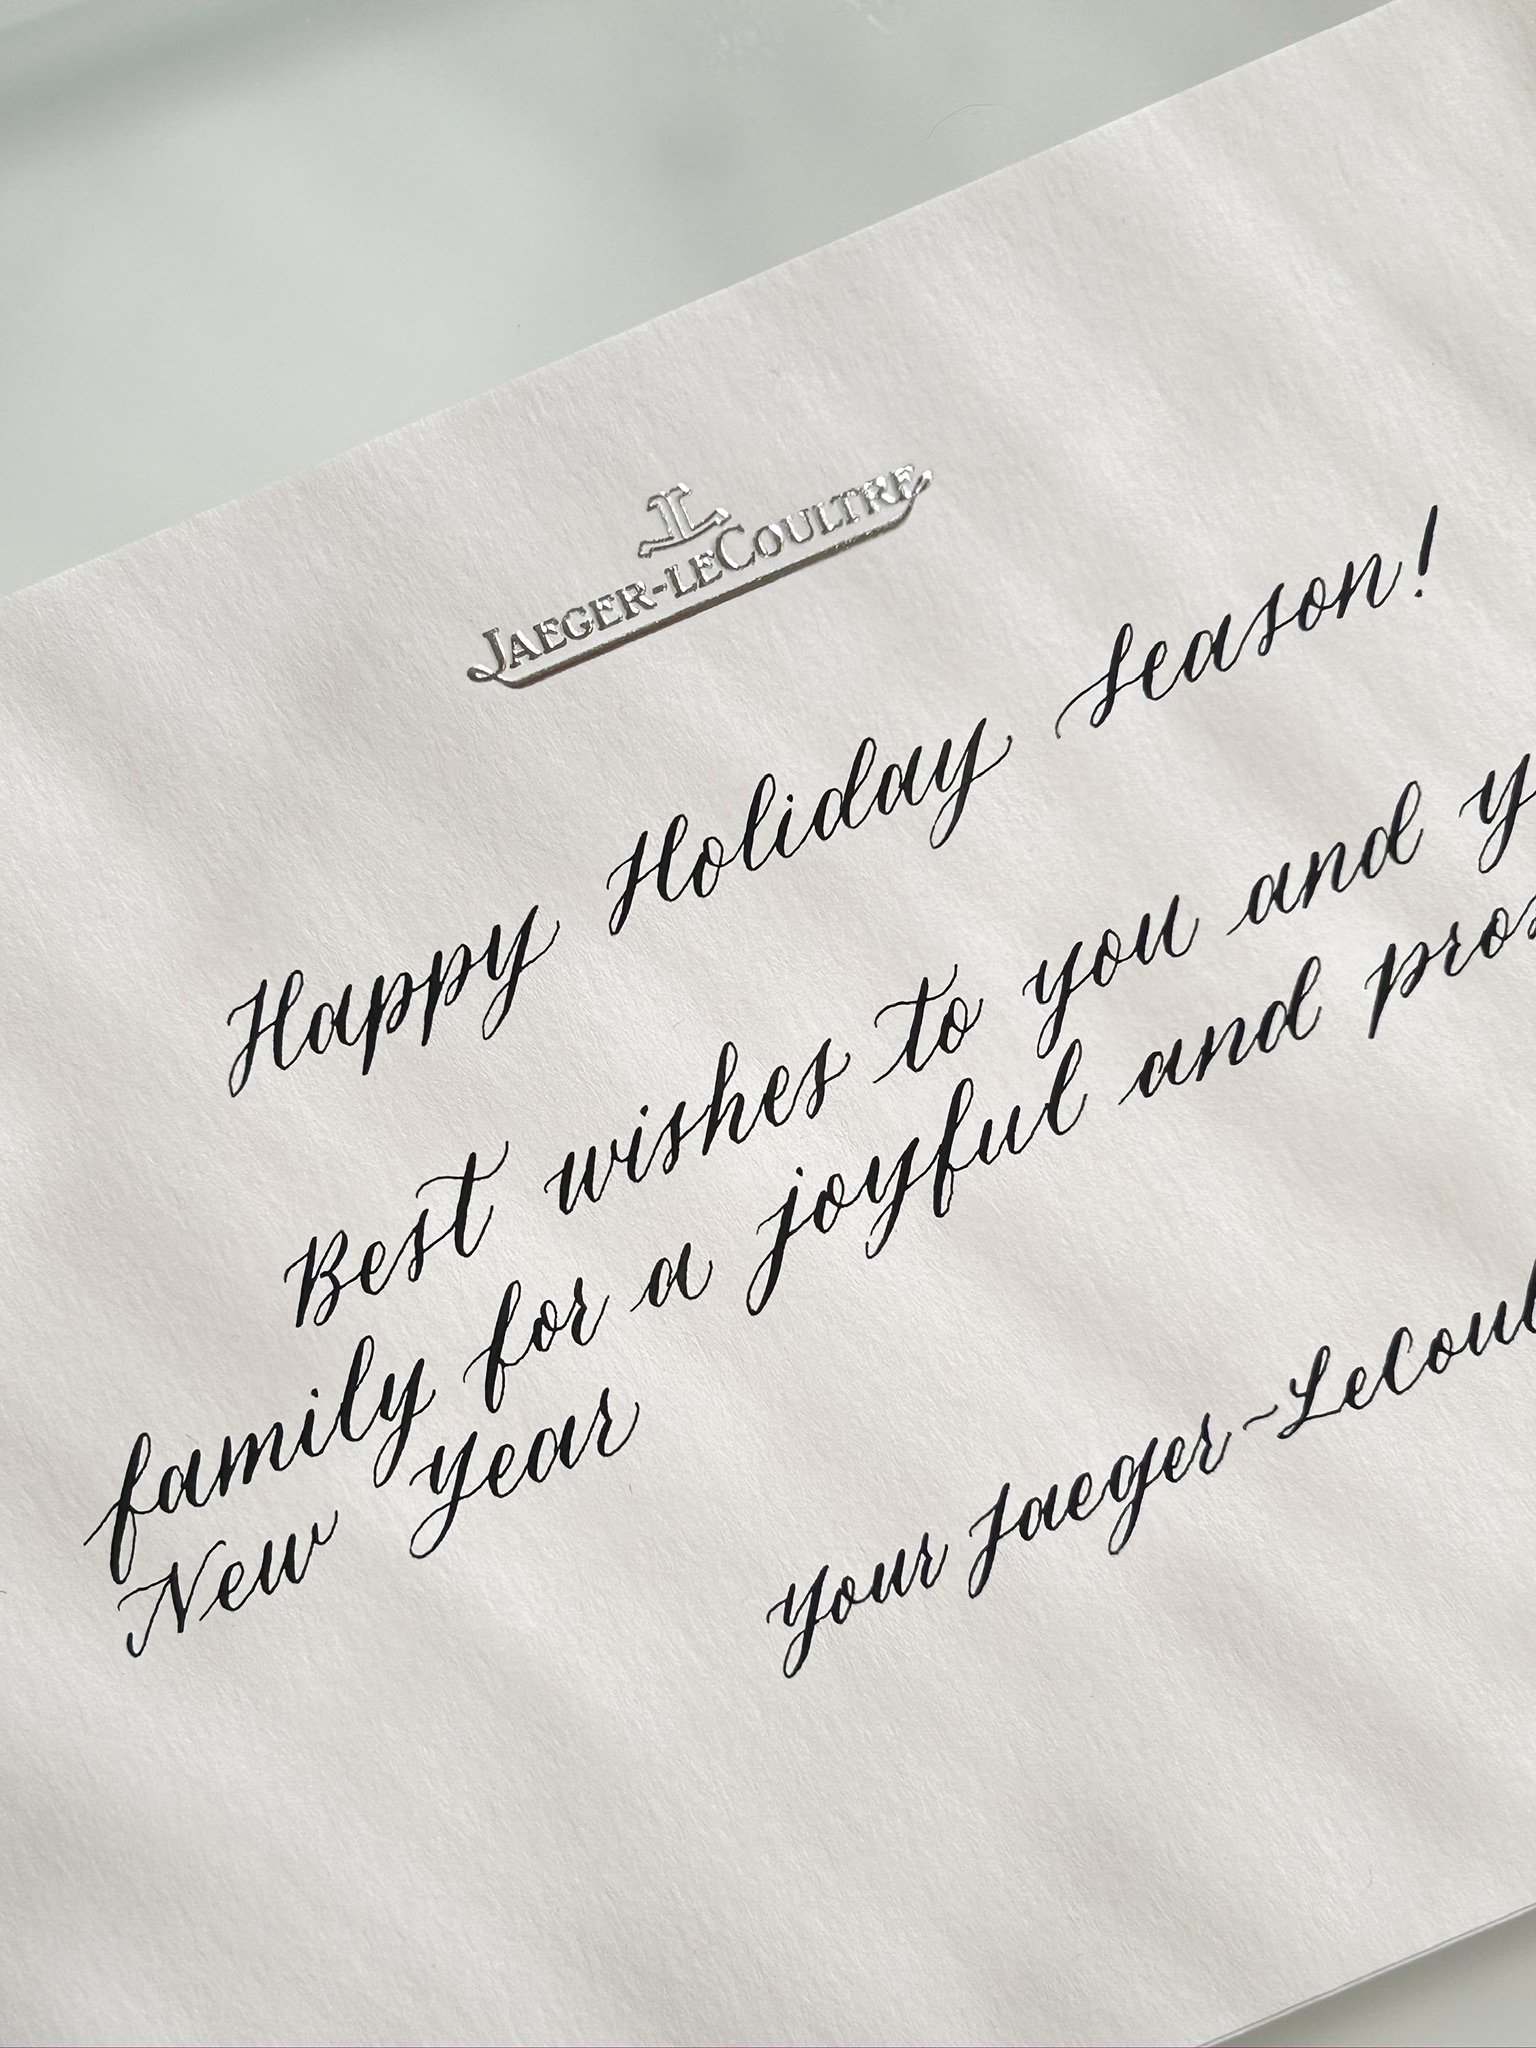 JL
JAEGER-LECOULTRE
Happy Holiday season!
Best wishes to you and
family for a joyful and
New Year
Your Jaeger-